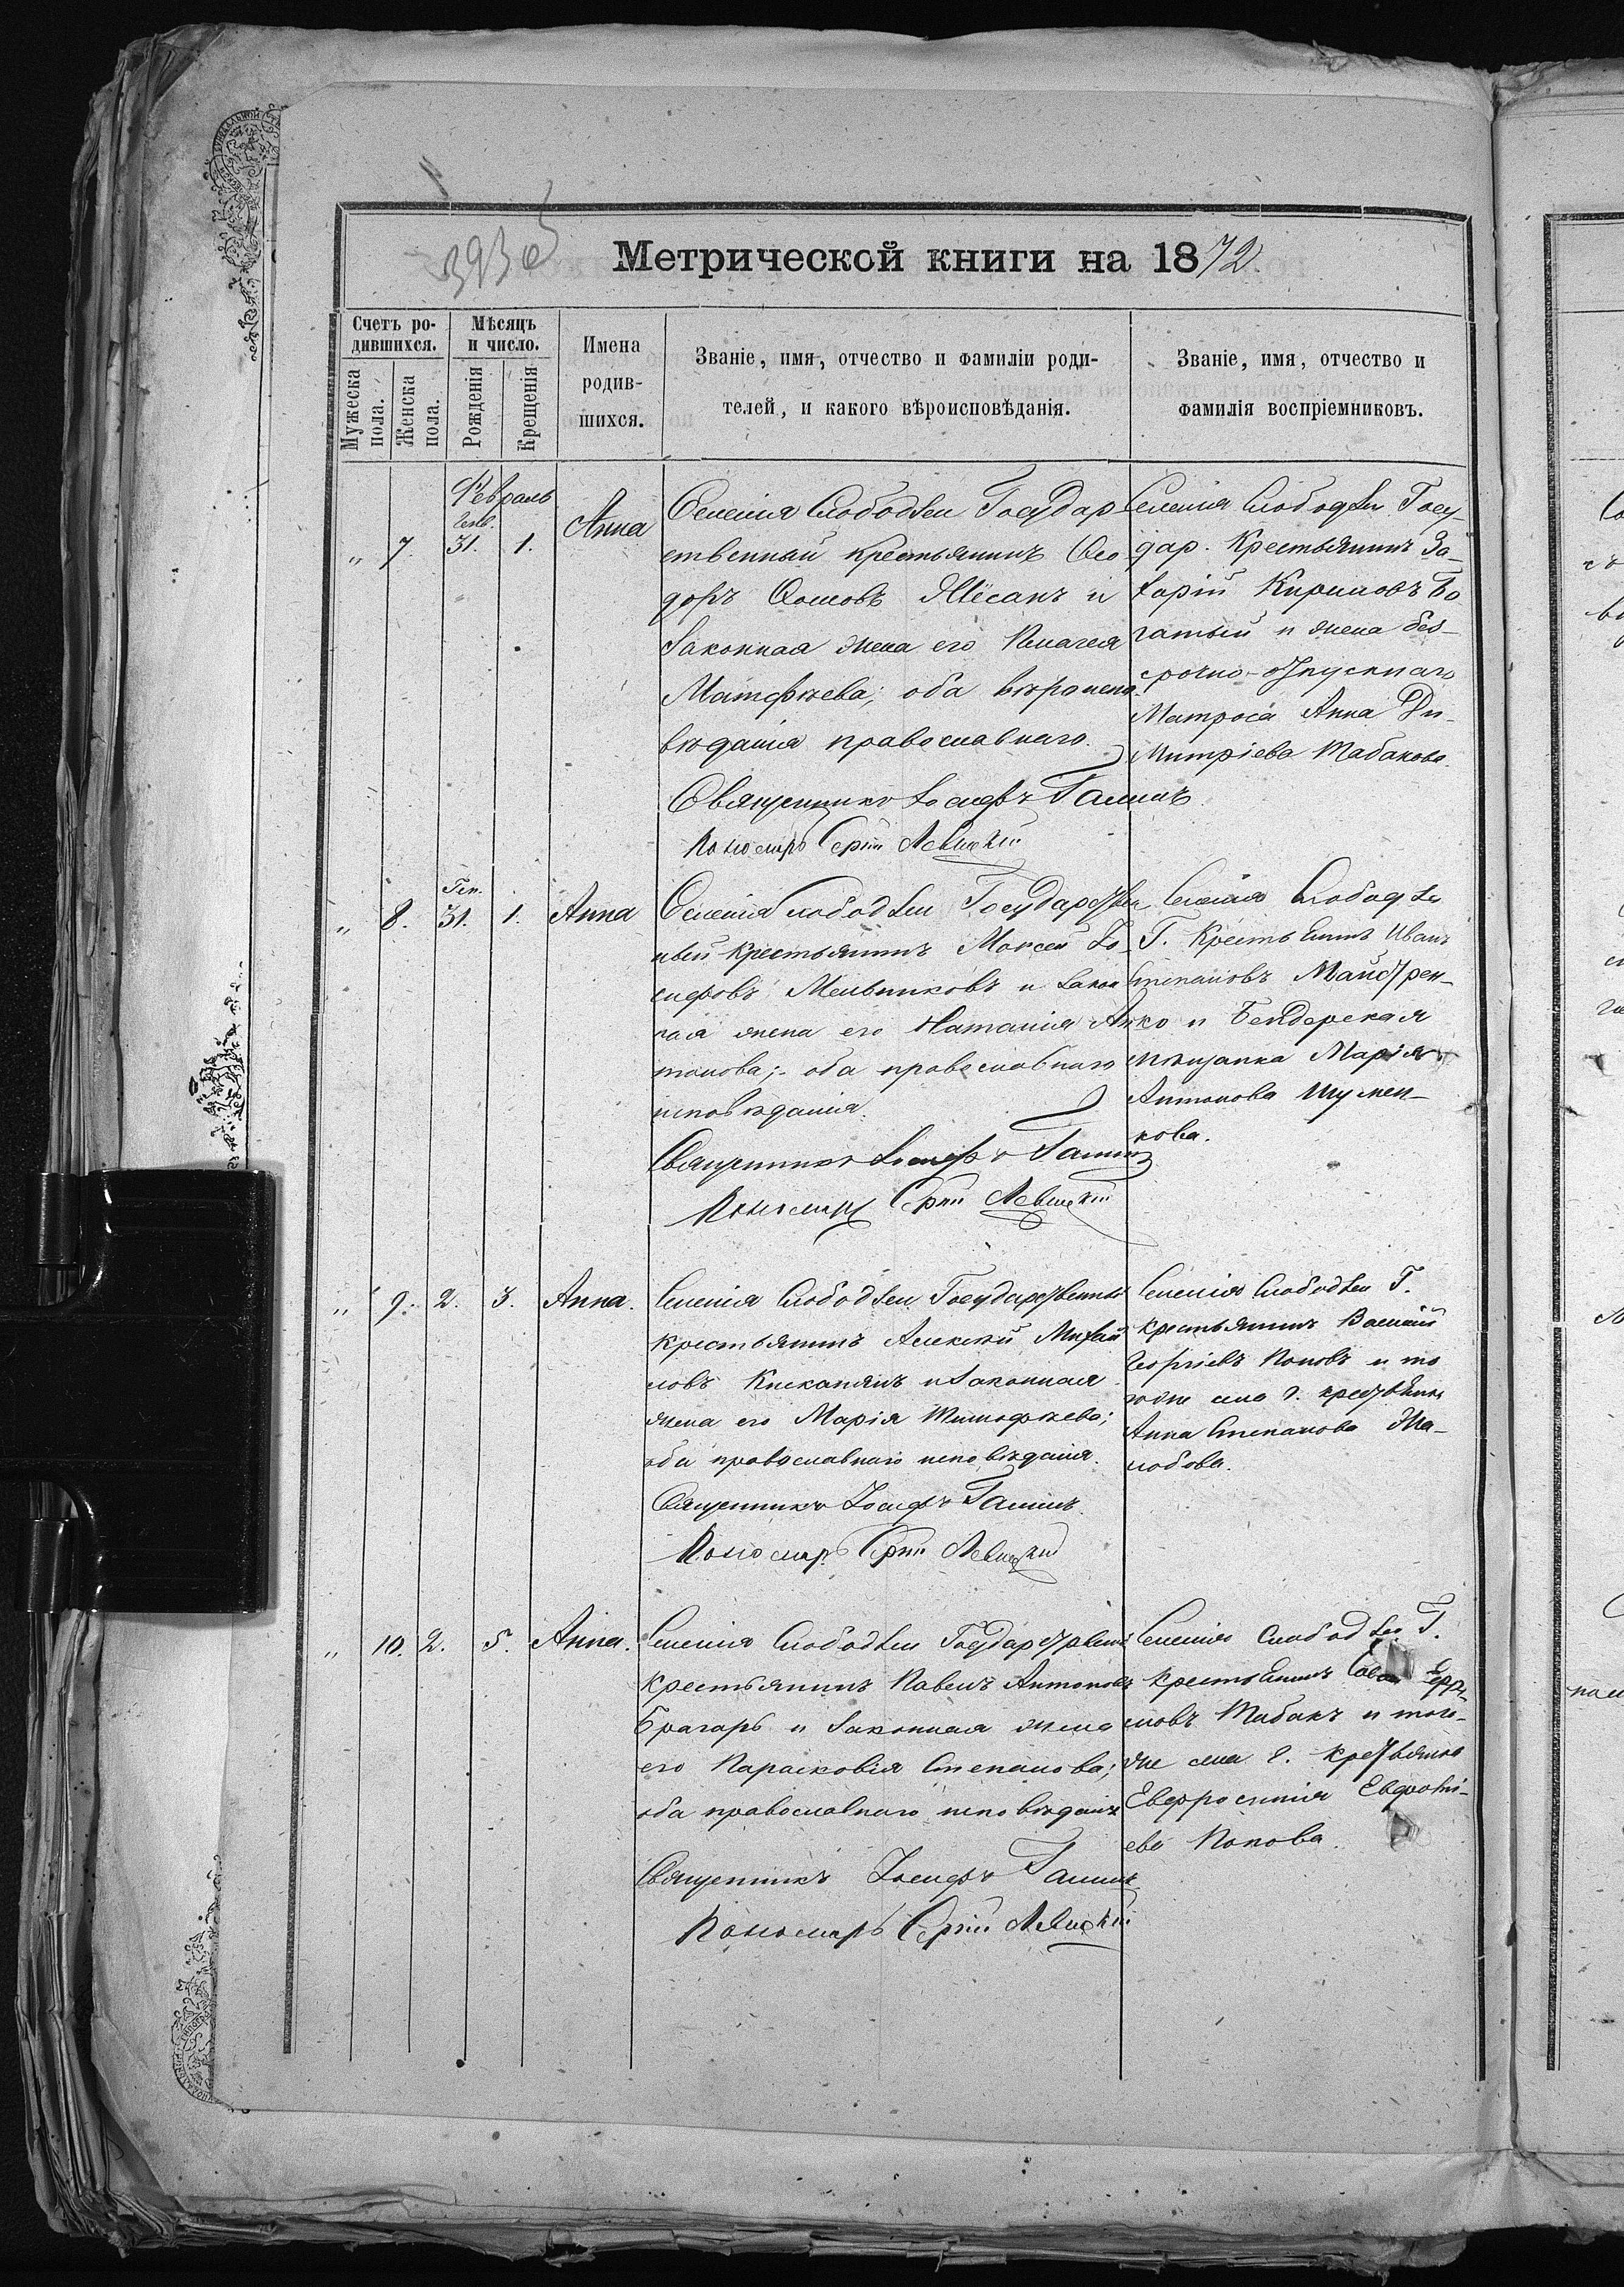 393 об
Метрической книги на 1872.
Счетъ ро-
дившихся.
Мѣсяцъ
и число.
Имена
родив-
шихся.
Званіе, имя, отчество и фамиліи роди-
телей, и какого вѣроисповѣданія.
Званіе, имя, отчество и
фамилія воспріемниковъ.
Мужеска
пола.
Женска
пола.
Рожденія
Крещенія
Февраль
Генв.
„ 7. 31. 1. Анна
Селенія Слободзеи Государ-
ственный крестьянинъ Ѳео
доръ Ѳомовъ и
законная жена его Пелагея
Матфѣева; оба вѣроиспо-
вѣданія православнаго.
Священникъ Іосифъ
Пономарь Сергій Левицкій
Селенія Слободзеи Госу-
дар. Крестьянинъ За-
харій Кириловъ Бо
гатый и жена без-
срочно-отпускнаго
Матроса Анна Ди-
митріева Табакова.
Ген.
„ 8. 31. 1. Анна
Селенія Слободзеи Государствен
ный крестьянинъ Моисей Іо-
сифовъ Мельниковъ и закон
ная жена его Наталія Ан
тонова; оба православнаго
исповѣданія.
Священникъ Іосифъ
Пономарь Сергій Левицкій
Селенія Слободзеи
Г. Крестьянинъ Иванъ
Степановъ Майстрен-
ко и Бендерская
мѣщанка Марія
Антонова Шумен-
кова.
„ 9. 2. 3. Анна.
Селенія Слободзеи Государственный
крестьянинъ Алексѣй Михай
ловъ и законная
жена его Марія Тимофѣева;
оба православнаго исповѣданія.
Священникъ Іосифъ
Пономарь Сергій Левицкій
Селенія Слободзеи Г.
крестьянинъ Василій
Георгіевъ Поповъ и то
гоже села г. крестьянка
Анна Степанова Жа-
лобова.
„ 10. 2. 5. Анна.
Селенія Слободзеи Государствен
крестьянинъ Павелъ Антоновъ
Брагарь и законная жена
его Парасковія Степанова;
оба православнаго исповѣданія
Священникъ Іосифъ
Пономарь Сергій Левицкій
Селенія Слободзеи Г.
крестьянинъ
мовъ Табакъ и того-
же села г. крестьянка
Евфросинія
ева Попова.